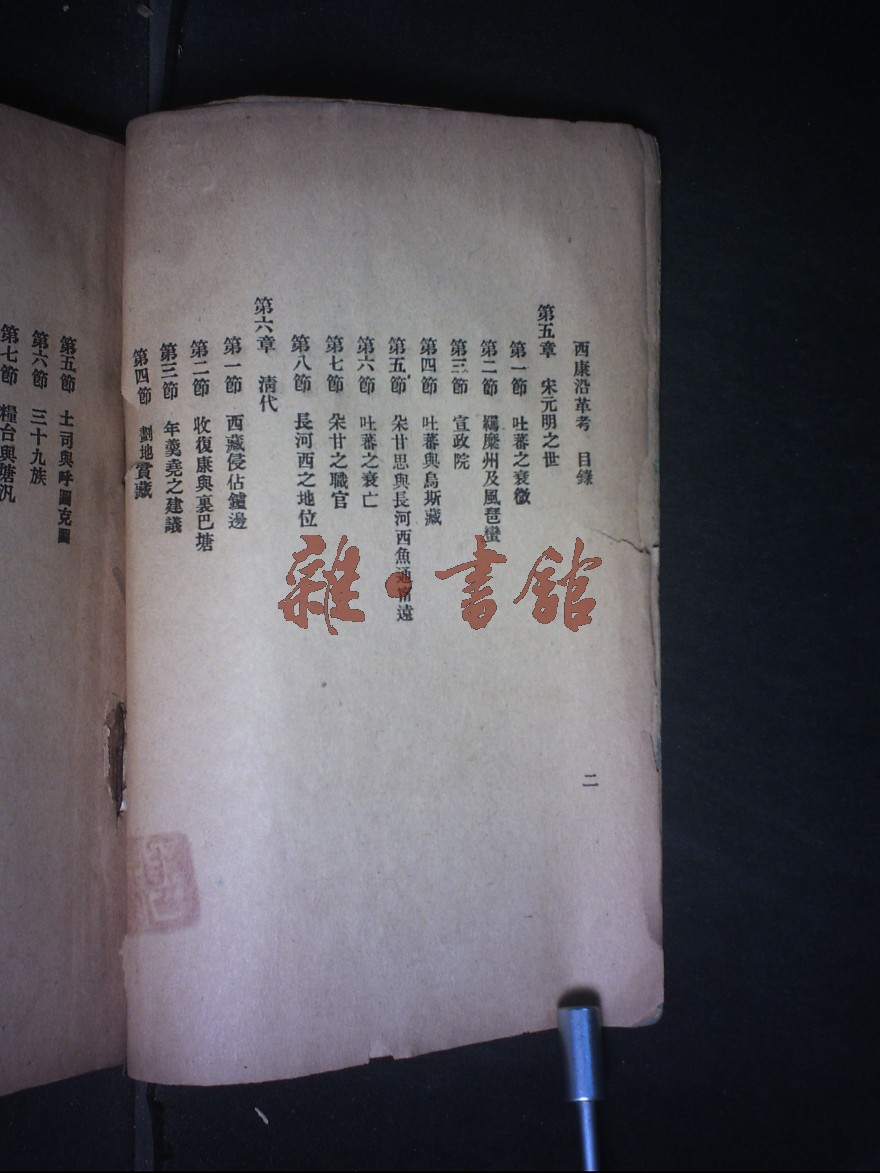 西康沿革考 目錄
二
第五章 宋元明之世
第一節 吐蕃之衰微
第二節 羈縻州及風琶蠻
第三節 宣政院
第四節 吐蕃與烏斯藏
第五節 朵甘思與長河西魚通甯遠
第六節 吐蕃之衰亡
第七節 朵甘之職官
第八節 長河西之地位
第六章 清代
第一節 西藏侵佔鑪邊
第二節 收復康與裏巴塘
第三節 年羹堯之建議
第四節 劃地賞藏
第五節 土司與呼圖克圖
第六節 三十九族
第七節 糧台與塘汛
雜·書館